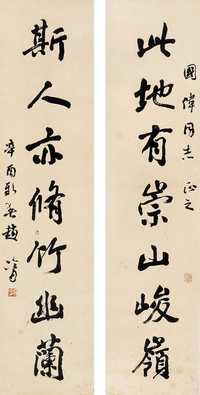 國偉同志正之
此地有崇山峻嶺
斯人亦脩竹幽蘭
辛酉秋